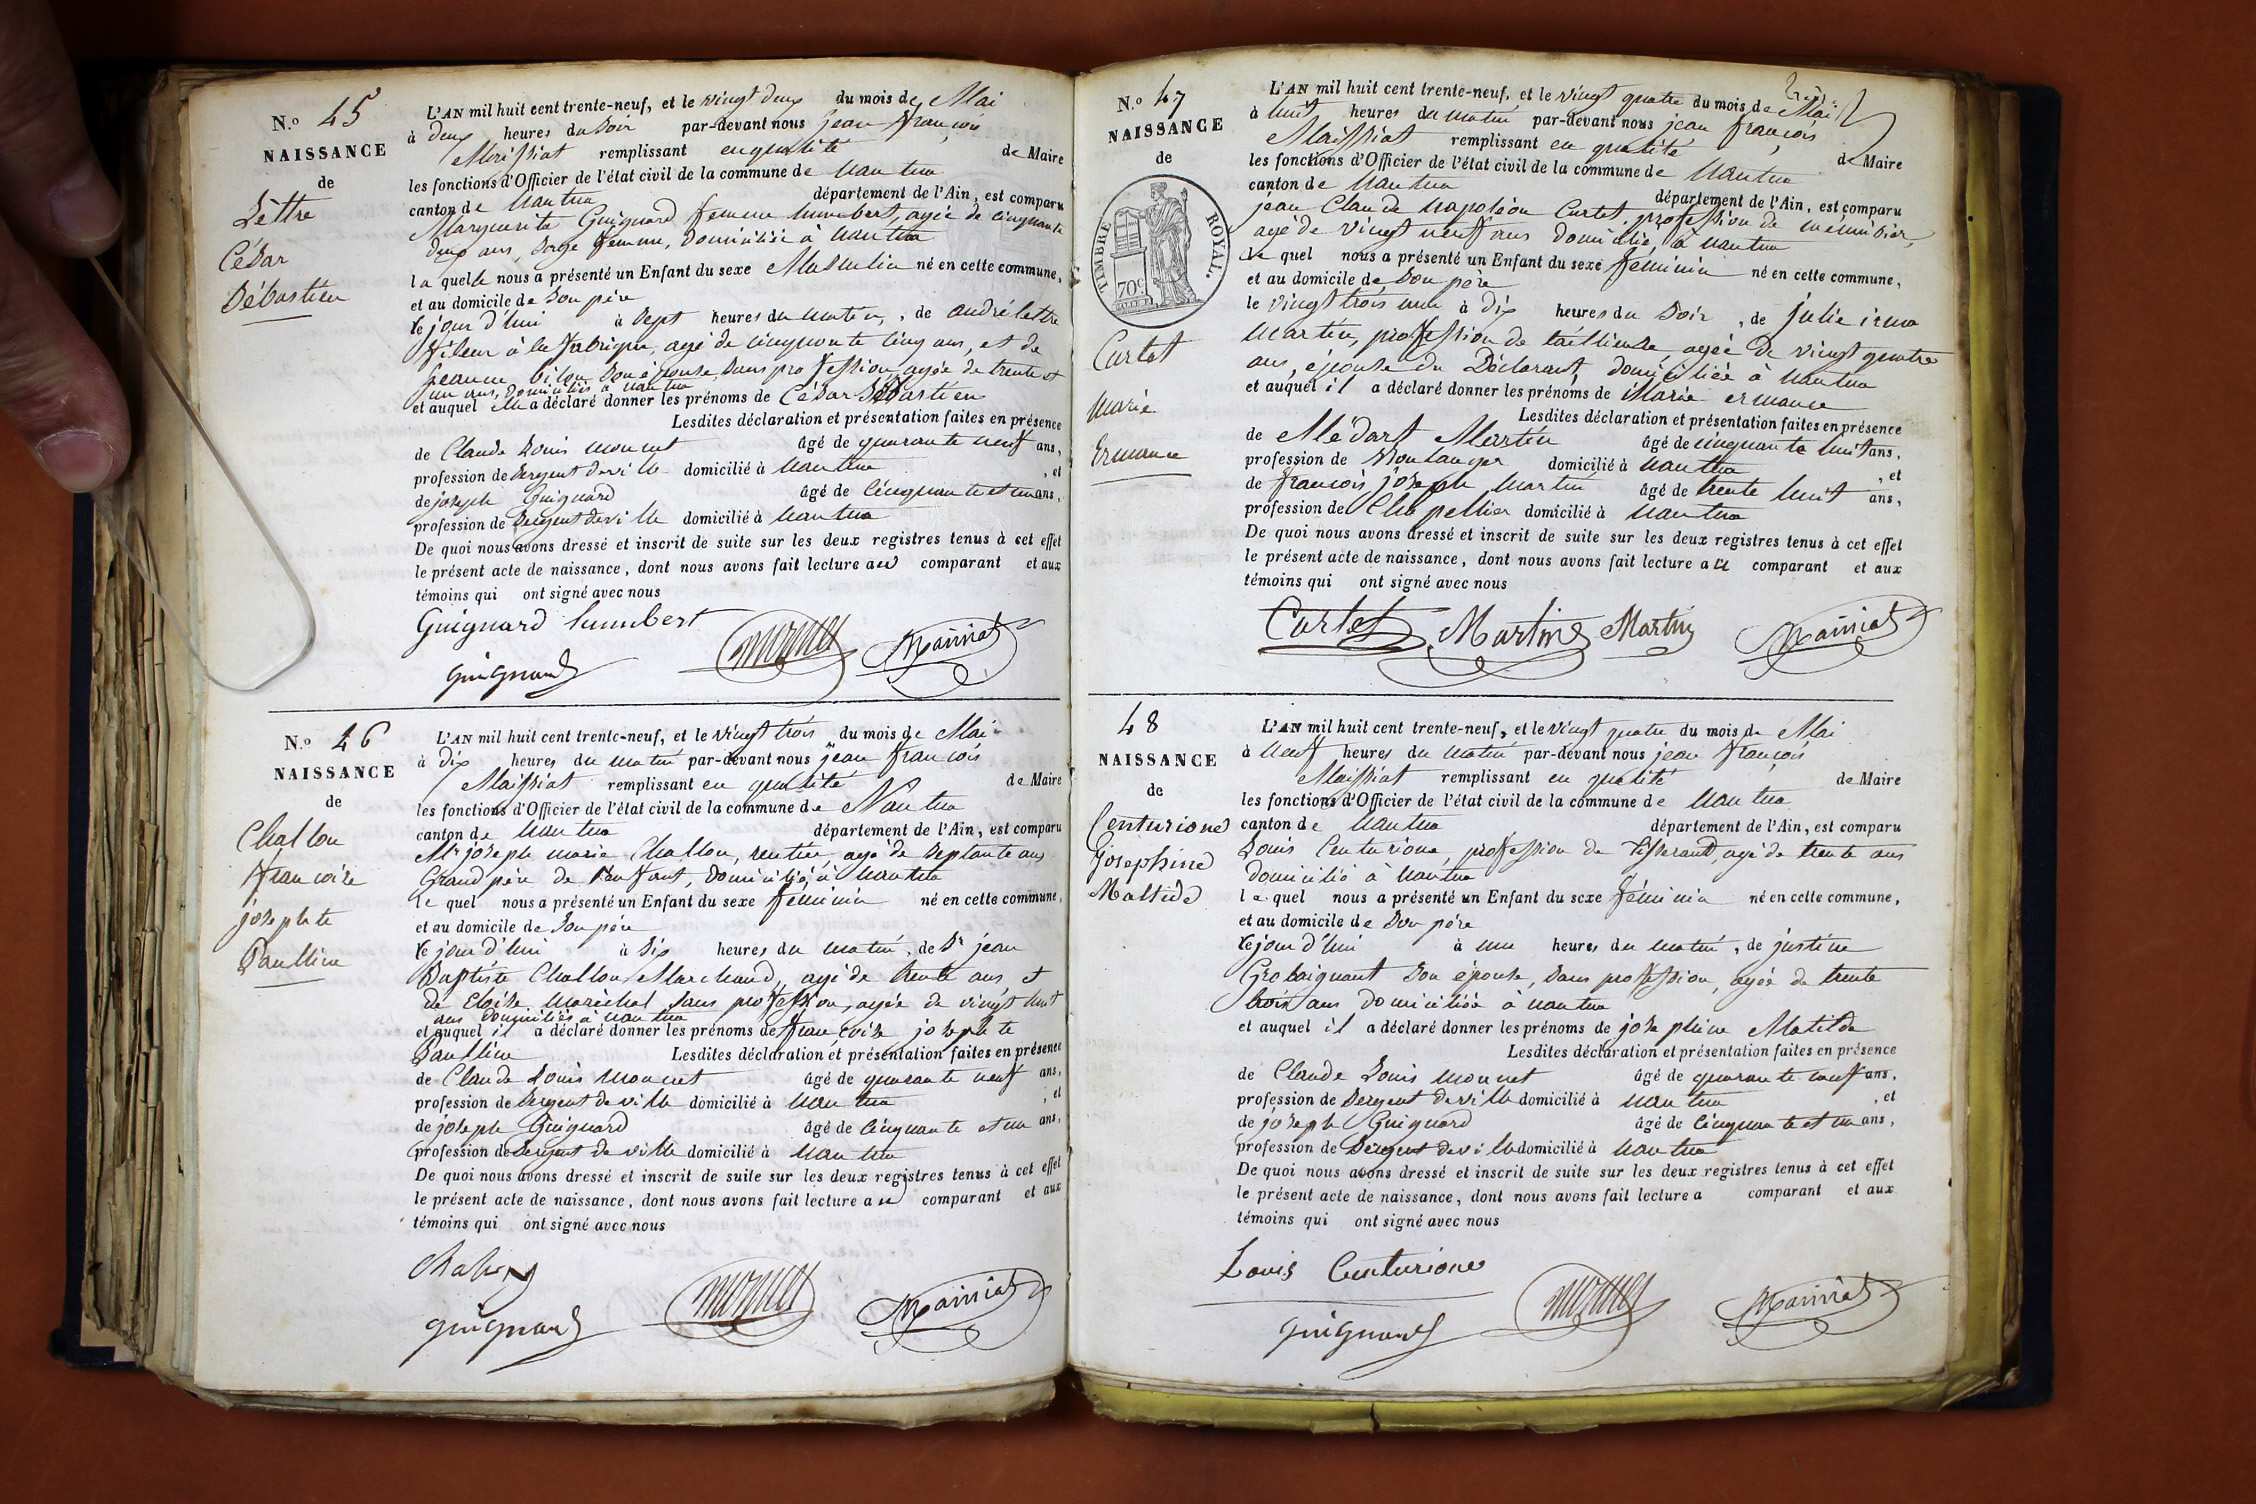 N.o 45
NAISSANCE
de
Lèttre
César
Sébastien
L'AN mil huit cent trente-neuf, et le vingt deux du mois de Mai
à deux heures du soir par-devant nous jean françois
Maissiat remplissant en qualité de Maire
les fonctions d'Officier de l'état civil de la commune de Nantua
canton de Nantua département de l'Ain, est comparu
Marguerite Guignard femme humbert, agée de cinquante
deux ans, sage femme, domiciliée à Nantua
la quelle nous a présenté un Enfant du sexe Masculin né en cette commune,
et au domicile de son père
le jour d'hui à sept heures du matin, de andré lettre
fileur à la fabrique, agé de cinquante cinq ans, et de
jeanne son épouse, sans profession, agée de trente et
un ans, domiciliés à Nantua
et auquel elle a déclaré donner les prénoms de César Sébastien
Lesdites déclaration et présentation faites en présence
de Claude Louis Monnet âgé de quarante neuf ans,
profession de sergent de ville domicilié à Nantua , et
de joseph Guignard âgé de cinquante et un ans,
profession de sergent de ville domicilié à Nantua
De quoi nous avons dressé et inscrit de suite sur les deux registres tenus à cet effet
le présent acte de naissance, dont nous avons fait lecture au comparant et aux
témoins qui ont signé avec nous
Guignard humbert
Monnet Maissiat
guignard
N.o 46
NAISSANCE
de
Challon
françoise
josephte
Paulline
L'AN mil huit cent trente-neuf, et le vingt trois du mois de Mai
à dix heures du matin par-devant nous jean françois
Maissiat remplissant en qualité de Maire
les fonctions d'Officier de l'état civil de la commune de Nantua
canton de Nantua département de l'Ain, est comparu
Mr joseph marie Challon, rentier, agé de septante ans
Grand père de l'enfant, domicilié à Nantua
le quel nous a présenté un Enfant du sexe féminin né en cette commune,
et au domicile de son père
le jour d'hui à six heures du matin, de Sr jean
Baptiste Challon Marchand, agé de trente ans, et
de Eloïse Maréchal sans profession, agée de vingt huit
ans domiciliés à Nantua
et auquel il a déclaré donner les prénoms de françoise josephte
Paulline Lesdites déclaration et présentation faites en présence
de Claude Louis Monnet âgé de quarante neuf ans,
profession de sergent de ville domicilié à Nantua , et
de joseph Guignard âgé de cinquante et un ans,
profession de sergent de ville domicilié à Nantua
De quoi nous avons dressé et inscrit de suite sur les deux registres tenus à cet effet
le présent acte de naissance, dont nous avons fait lecture au comparant et aux
témoins qui ont signé avec nous
Monnet Maissiat
guignard
N.o 47
NAISSANCE
de
TIMBRE ROYAL.
70c.
Curtet
Marie
Ermance
L'AN mil huit cent trente-neuf, et le vingt quatre du mois de Mai
à huit heures du matin par-devant nous jean françois
Maissiat remplissant en qualité de Maire
les fonctions d'Officier de l'état civil de la commune de Nantua
canton de Nantua département de l'Ain, est comparu
jean Claude Napoléon Curtet, profession de menuisier,
agé de vingt neuf ans domicilié à Nantua
le quel nous a présenté un Enfant du sexe féminin né en cette commune,
et au domicile de son père
le vingt trois à dix heures du soir, de julie irma
Martin, profession de taillieuse agée de vingt quatre
ans, épouse du Déclarant, domiciliée à Nantua
et auquel il a déclaré donner les prénoms de Marie ermance
Lesdites déclaration et présentation faites en présence
de Médart Martin âgé de cinquante huit ans,
profession de Boulanger domicilié à Nantua , et
de françois joseph Martin âgé de trente huit ans,
profession de Chapellier domicilié à Nantua
De quoi nous avons dressé et inscrit de suite sur les deux registres tenus à cet effet
le présent acte de naissance, dont nous avons fait lecture au comparant et aux
témoins qui ont signé avec nous
Curtet Martin Martin Maissiat
48
NAISSANCE
de
Centurione
josephine
Maltide
L'AN mil huit cent trente-neuf, et le vingt quatre du mois de Mai
à neuf heures du matin par-devant nous jean françois
Maissiat remplissant en qualité de Maire
les fonctions d'Officier de l'état civil de la commune de Nantua
canton de Nantua département de l'Ain, est comparu
Louis Centurione, profession de Tisserand, agé de trente ans
domicilié à Nantua
le quel nous a présenté un Enfant du sexe féminin né en cette commune,
et au domicile de son père
le jour d'hui à une heures du matin, de justine
Grobaignant son épouse, sans profession, agée de trente
trois ans domiciliée à Nantua
et auquel il a déclaré donner les prénoms de joséphine Matilde
Lesdites déclaration et présentation faites en présence
de Claude Louis Monnet âgé de quarante neuf ans,
profession de sergent de ville domicilié à Nantua , et
de joseph Guignard âgé de cinquante et un ans,
profession de sergent de ville domicilié à Nantua
De quoi nous avons dressé et inscrit de suite sur les deux registres tenus à cet effet
le présent acte de naissance, dont nous avons fait lecture a comparant et aux
témoins qui ont signé avec nous
Louis Centurione
guignard Monnet Maissiat